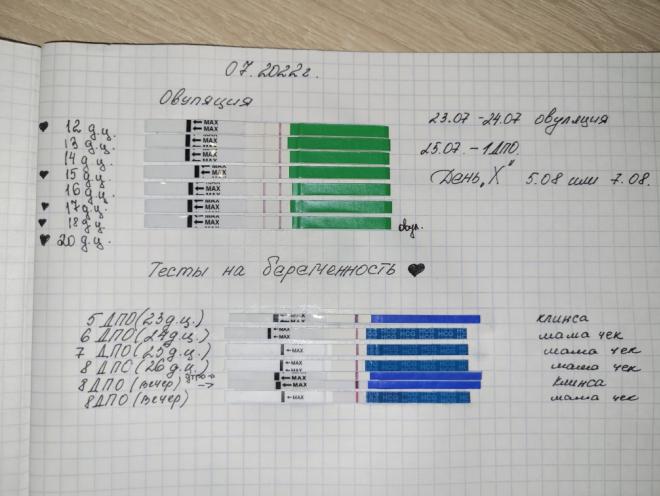 07.2022г.
Овуляция
♥ 12 д.ц. ← MAX ← MAX 23.07 - 24.07 овуляция
13 д.ц. ← MAX
14 д.ц. ← MAX 25.07. - 1 ДПО.
♥ 15 д.ц. ← MAX День „X" 5.08 или 7.08.
16 д.ц. ← MAX
♥ 17 д.ц. ← MAX
♥ 18 д.ц. ← MAX
♥ 20 д.ц. овул.
Тесты на беременность ♥
5 ДПО (23 д.ц.) ← MAX клинса
6 ДПО (24 д.ц.) ← MAX HCG HCG HCG мама чек
7 ДПО (25 д.ц.) ← MAX HCG HCG HCG мама чек
8 ДПО (26 д.ц.) ← MAX HCG HCG HCG мама чек
утро → ← MAX
8 ДПО (вечер) → ← MAX клинса
8 ДПО (вечер) ← MAX HCG HCG HCG мама чек